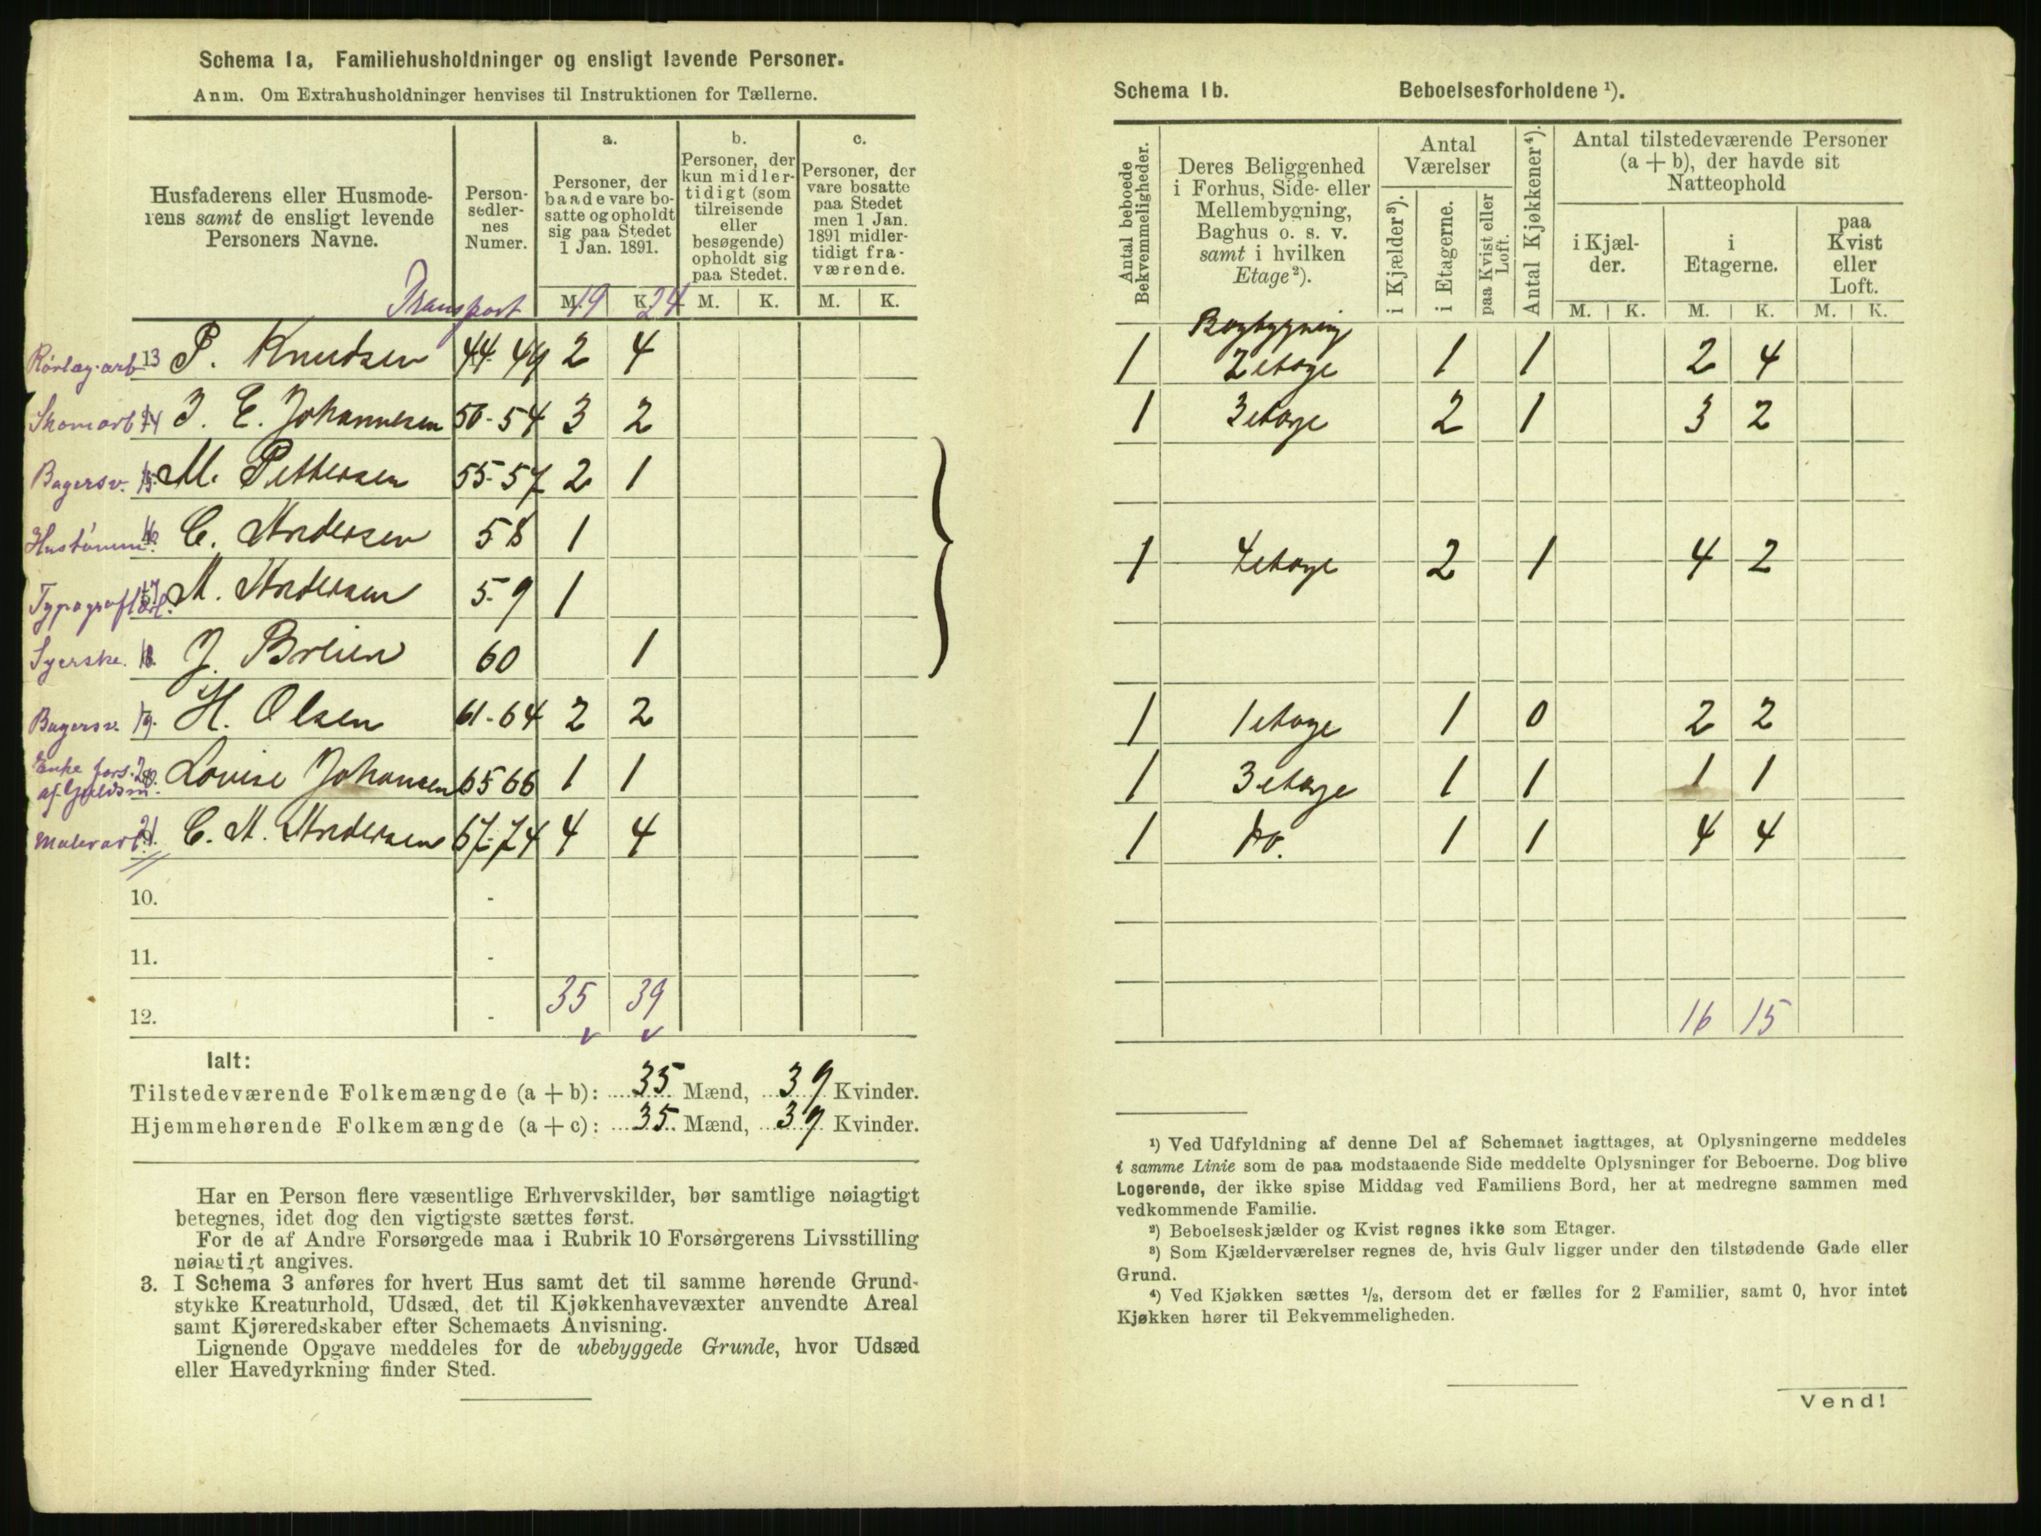 Schema 1a, Familiehusholdninger og ensligt levende Personer.
Anm. Om Extrahusholdninger henvises til Instruktionen for Tællerne.
Husfaderens eller Husmoderens samt de ensligt levende Personers Navne.
Personsedlernes Numer.
a. Personer, der baade vare bosatte og opholdt sig paa Stedet 1 Jan. 1891.
b. Personer, der kun midlertidigt (som tilreisende eller besøgende) opholdt sig paa Stedet.
c. Personer, der vare bosatte paa Stedet men 1 Jan. 1891 midlertidigt fraværende.
Transport M. 19 K. 24 M. K. M. K.
Rørlæg.arb 13 P. Knudsen 44-49 2 4
Skomarb 14 J. E. Johannesen 50-54 3 2
Bagersv. 15. M. Pettersen 55-57 2 1
Hustømm. 16. C. Andersen 58 1
17 A. Andersen 59 1
Syerske. 18. J. Breien 60 1
Bagersv. 19. H. Olsen 61-64 2 2
Enke fors. af Guldsm. 20. Lovise Johansen 65 66 1 1
Malerarb. 21. C. A. Andersen 67-74 4 4
10. -
11. -
12. - 35 39
Ialt:
Tilstedeværende Folkemængde (a + b): 35 Mænd, 39 Kvinder.
Hjemmehørende Folkemængde (a + c): 35 Mænd, 39 Kvinder.
Har en Person flere væsentlige Erhvervskilder, bør samtlige nøiagtigt
betegnes, idet dog den vigtigste sættes først.
For de af Andre Forsørgede maa i Rubrik 10 Forsørgerens Livsstilling
nøiagtigt angives.
3. I Schema 3 anføres for hvert Hus samt det til samme hørende Grund-
stykke Kreaturhold, Udsæd, det til Kjøkkenhavevæxter anvendte Areal
samt Kjøreredskaber efter Schemaets Anvisning.
Lignende Opgave meddeles for de ubebyggede Grunde, hvor Udsæd
eller Havedyrkning finder Sted.
Schema 1b. Beboelsesforholdene ¹).
Antal beboede Bekvemmeligheder.
Deres Beliggenhed i Forhus, Side- eller Mellembygning, Baghus o. s. v. samt i hvilken Etage²).
Antal Værelser
i Kjælder³).
i Etagerne.
paa Kvist eller Loft.
Antal Kjøkkener⁴).
Antal tilstedeværende Personer (a + b), der havde sit Natteophold
i Kjælder.
i Etagerne.
paa Kvist eller Loft.
M. K. M. K. M. K.
Bagbygning
1 2 etage 1 1 2 4
1 3 etage 2 1 3 2
1 4 etage 2 1 4 2
1 1 etage 1 0 2 2
1 3 etage 1 1 1 1
1 Do. 1 1 4 4
16 15
¹) Ved Udfyldning af denne Del af Schemaet iagttages, at Oplysningerne meddeles
i samme Linie som de paa modstaaende Side meddelte Oplysninger for Beboerne. Dog blive
Logerende, der ikke spise Middag ved Familiens Bord, her at medregne sammen med
vedkommende Familie.
²) Beboelseskjælder og Kvist regnes ikke som Etager.
³) Som Kjælderværelser regnes de, hvis Gulv ligger under den tilstødende Gade eller
Grund.
⁴) Ved Kjøkken sættes ½, dersom det er fælles for 2 Familier, samt 0, hvor intet
Kjøkken hører til Bekvemmeligheden.
Vend!